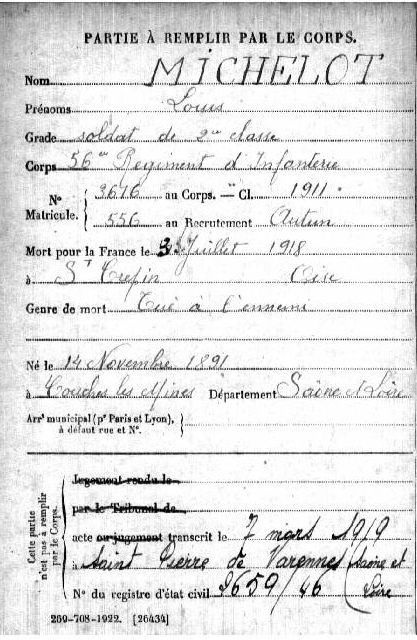 PARTIE À REMPLIR PAR LE CORPS.
Nom MICHELOT
Prénoms Louis
Grade soldat de 2me classe
Corps 56me Régiment d'Infanterie
N° 3616 au Corps. — Cl. 1911.
Matricule. 556 au Recrutement Autun
Mort pour la France le Juillet 1918
à St Crépin Oise
Genre de mort Tué à l'ennemi
Né le 14 Novembre 1891
à Couches les Mines Département Saône et Loire
Arrt municipal (pr Paris et Lyon),
à défaut rue et N°.
Cette partie
n'est pas à remplir
par le Corps.
Jugement rendu le
par le Tribunal de
acte ou jugement transcrit le 7 mars 1919
à Saint Pierre de Varennes (Saône et
Loire
N° du registre d'état civil 9659/46
269-708-1922. [26434]